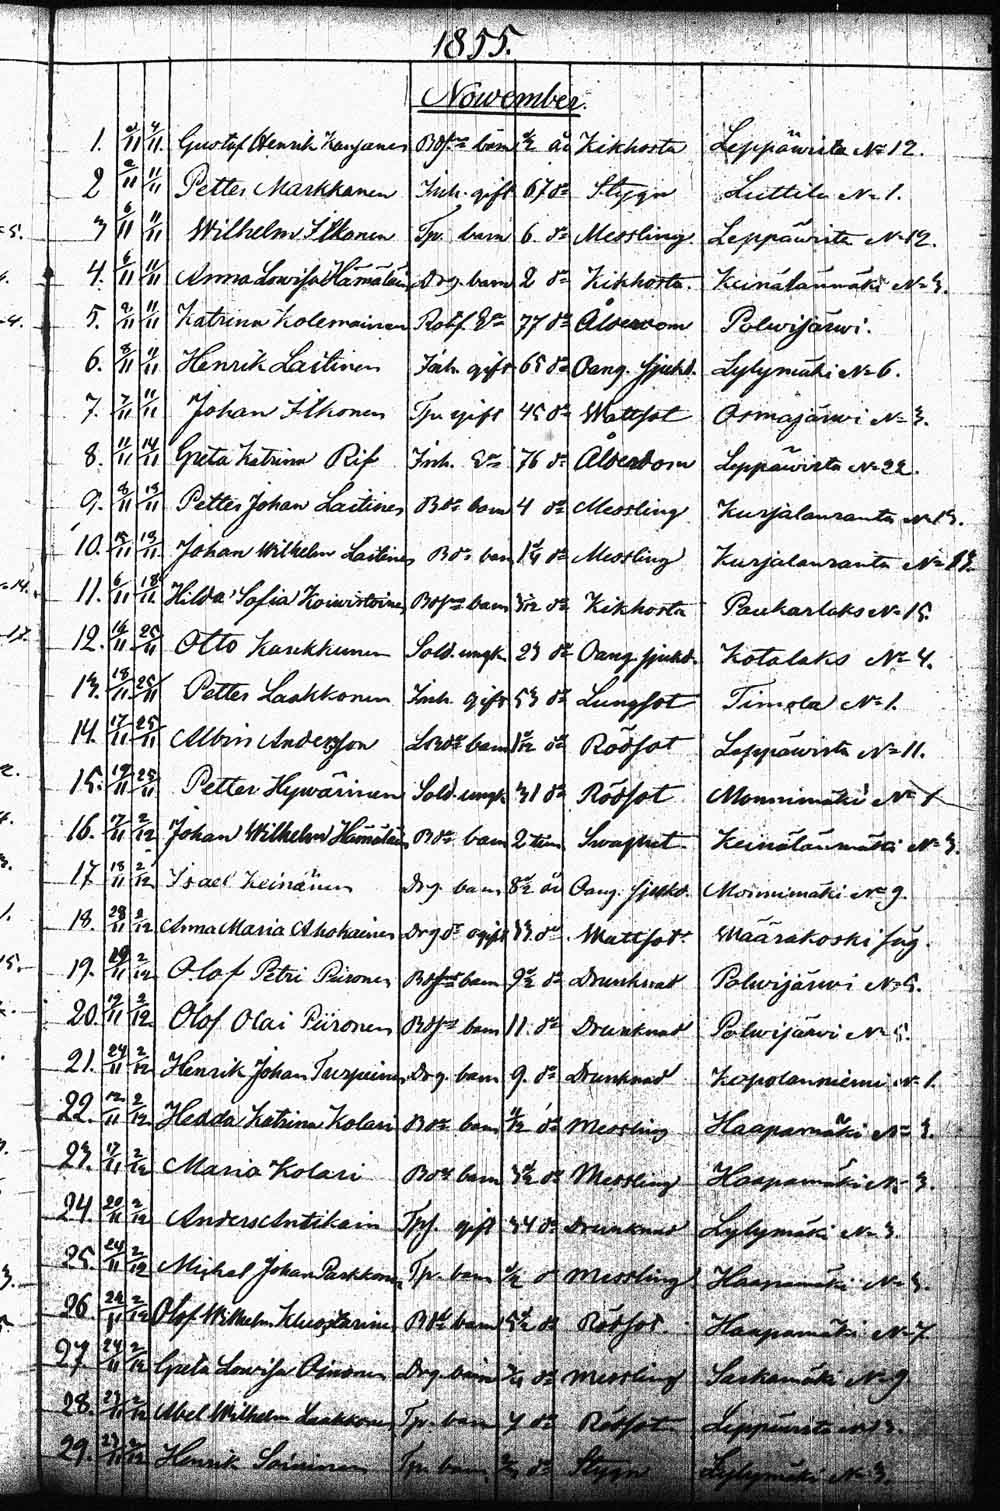 1855.
November.
1. 4/11 Gustaf Henrik barn 1/2 år Kikhosta Leppäwirta No 12.
2 11/11 Petter Markkanen Inh. gift 67 do Stygn Luttila No 1.
3 6/11 11/11 Wilhelm Ilkonen Tp. barn 6. do Messling. Leppäwirta No 12.
4. 6/11 11/11 Anna Lowisa Hämäläin Drg. barn 2 do Kikhosta. Keinälänmäki No 3.
5. 9/11 11/11 Katrina Kolemainen Rotf. Ea 77 do Ålderdom Polwijärwi.
6. 8/11 11/11 Henrik Laitinen Inh. gift 65 do Oang. sjukd. Lylymäki No 6.
7. 7/11 11/11 Johan Ilkonen Tp. gift 45 do Wattsot Osmajärwi No 3.
8. 11/11 14/11 Greta Katrina Rif Inh. Ea 76 do Ålderdom Leppäwirta No 22.
9. 8/11 18/11 Petter Johan Laitinen Bdr barn 4 do Messling Kurjalanranta No 13.
10. 18/11 Johan Wilhelm Laitinen Bdr barn 1 1/4 do Messling Kurjalanranta No 13.
11. 6/11 18/11 Hilda Sofia Koiwistoinen barn do Kikhosta Paukarlaks No 15.
12. 16/11 25/11 Otto Karkkunen Sold. ungk. 23 do Oang sjukd. Kotalaks No 4.
13. 18/11 25/11 Petter Laakkonen Inh. gift 53 do Lungsot Timola No 1.
14. 17/11 25/11 Albin Andersson barn do Rödsot Leppäwirta No 11.
15. 19/11 25/11 Petter Hywärinen Sold. ungk 31 do Rödsot Monnimäki No 1
16. 17/11 2/12 Johan Wilhelm Hämäläin Bdr barn 2 tim Swaghet Keinälänmäki No 3.
17 18/11 2/12 Isael Keinänen Drg. barn 8 1/2 år Oang. sjukd. Monnimäki No 9.
18. 28/11 2/12 Anna Maria Ahokainen Drg dr ogift 33 do Wattsot. Määräkoski såg.
19. 19/11 2/12 Olof Petri Piironen barn 9 1/2 do Drunknad Polwijärwi No 5.
20. 19/11 2/12 Olof Olai Piironen barn 11. do Drunknad Polwijärwi No 5.
21. 24/11 2/12 Henrik Johan Turpeinen Drg. barn 9. do Drunknad Kopolanniemi No 1.
22. 12/11 2/12 Hedda Katrina Kolari Bdr barn 1/2 do Messling Haapamäki No 3.
23. 17/11 2/12 Maria Kolari Bdr barn 3 1/2 do Messling Haapamäki No 3.
24. 20/11 2/12 Anders Antikain gift 34 do Drunknad Lylymäki No 3.
25. 24/11 2/12 Michel Johan Parkkonen Tp. barn 1/2 do Messling Haapamäki No 3.
26 24/11 2/12 Olof Wilhelm barn 5 1/2 do Rödsot. Haapamäki No 7.
27. 24/11 2/12 Greta Lowisa Drg. barn do Messling Saskamäki No 9
28. 23/11 2/12 Abel Wilhelm Laakkonen Tp. barn 7 do Rödsot Leppäwirta No 13.
29. 23/11 2/12 Henrik Soininen Tp. barn do Stygn Lylymäki No 3.